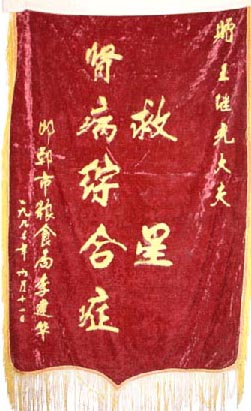 师主继礼大夫
救星
肾病综合症
邯郸市粮食局李建华
一九九三年六月十一日